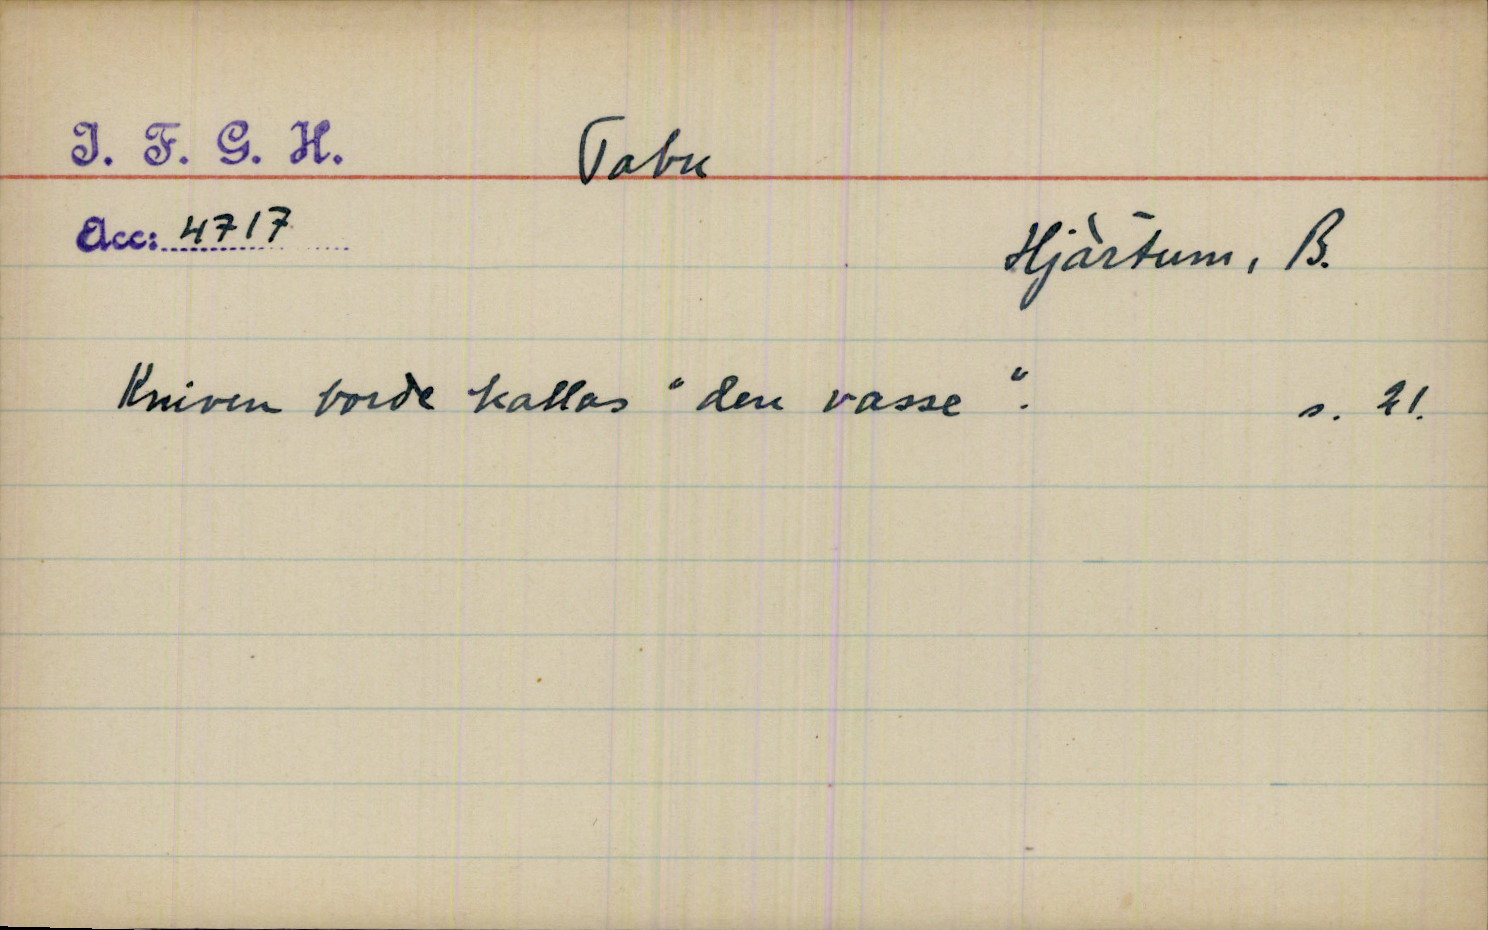 I. F. G. H.
Tabu
Acc: 4717
Hjärtum, B.
Kniven borde kallas "den vasse". s. 21.